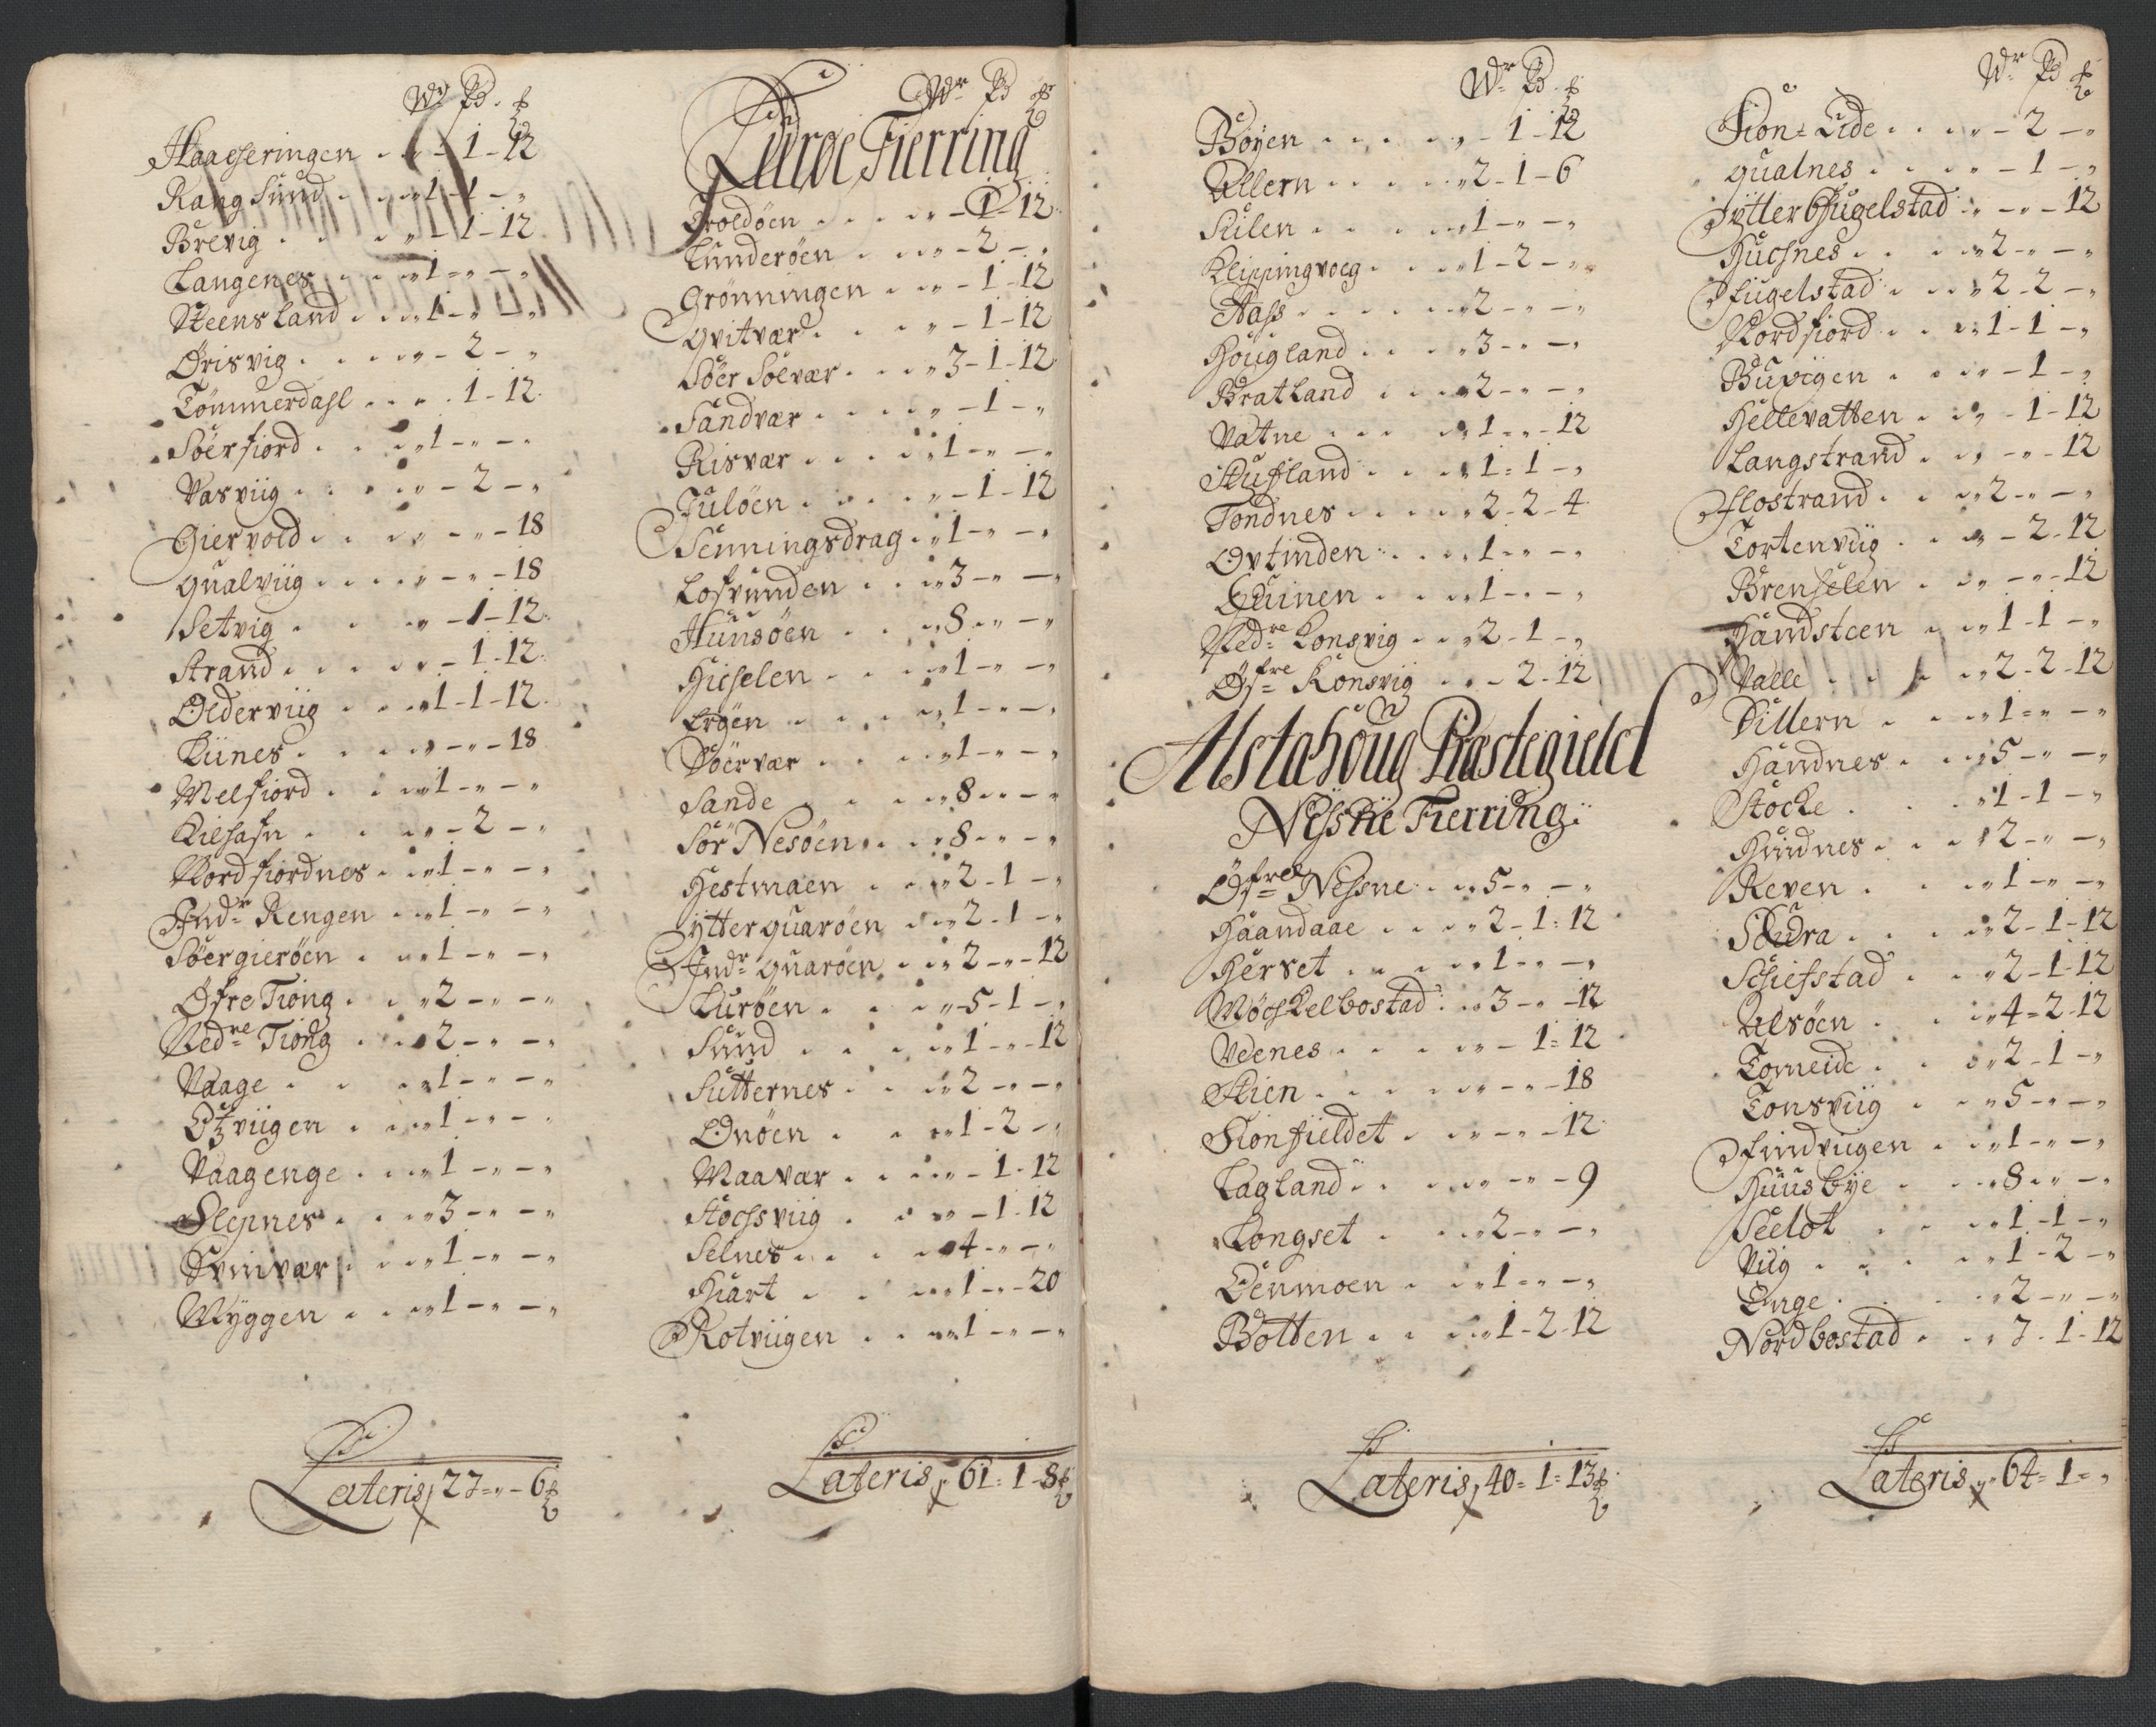 Wr Pd. ℔
Haagheringen . . „ - 1 - 12
Rang Sund . . . „1 - 1 - „
Brevig . . . „ - 1 - 12
Langenes . . . „1 - „ - „
Steensland . . . „1 - „ - „
Ørisvig . . . . „ - 2 - „
Tömmerdahl . . . . 1 - 12
Söerfiord . . . „1 - „ - „
Vasviig . . . . „ - 2 - „
Giervold . . . „ - „ - 18
Qualviig . . . . „ - „ - 18
Setvig . . . „ - 1 - 12
Strand . . . . „ - 1 - 12
Olderviig . . . „1 - 1 - 12
Kiines . . . . „ - „ - 18
Melfiord . . . „1 - „ - „
Kilhafn . . . „ - 2 - „
Nordfiordnes . . „1 - „ - „
Indr Rengen . . „1 - „ - „
Söergieröen . . „1 - „ - „
Øfre Tiong . . „2 - „ - „
Nedre Tiong . . „2 - „ - „
Vaage . . . „1 - „ - „
Otzviigen . . . „1 - „ - „
Vaagenge . . . „1 - „ - „
Slepnes . . . „3 - „ - „
Svinvær . . . „1 - „ - „
Myggen . . . „1 - „ - „
Lateris 27 = „ - 6 ℔
Wr Pd ℔
Luröe Fierring
Troldöen . . . . „ - 1 - 12
Lunderöen . . . „ - 2 - „
Grönningen . . „ - 1 - 12
Qvitvær . . . „ - 1 - 12
Söer Solvær . . . „3 - 1 - 12
Sandvær . . . . „ - 1 - „
Risvær . . . . „1 - „ - „
Juløen . . . . „ - 1 - 12
Senningsdrag . „1 - „ - „
Lofvunden . . . „3 - „ - „
Hunsöen . . . „8 - „ - „
Hieselen . . . „1 - „ - „
Ergen . . . . „1 - „ - „
Söervær . . . „1 - „ - „
Sande . . . „8 - „ - „
Sör Nesöen . . „8 - „ - „
Hestmaen . . . „2 - 1 - „
ytterquaröen . . „2 - 1 - „
Indr quaröen . . „2 - „ - 12
Luröen . . . „5 - 1 - „
Sund . . . „1 - „ - 12
Sutternes . . . „2 - „ - „
Onöen . . . „1 - 2 - „
Maavær . . . „ - 1 - 12
Stochsviig . . . „ - 1 - 12
Selnes . . . . „4 - „ - „
Hiart . . . „1 - „ - 20
Rotviigen . . . „1 - „ - „
Lateris, 61 = 1 - 8 ℔
Wr Pd. ℔
Böyen . . . . „ - 1 - 12
Allern . . . . „2 - 1 - 6
Sulen . . . . „1 - „ - „
Klippingvog . . . „1 - 2 - „
Aass . . . . . „2 - „ - „
Hougland . . . „3 - „ - „
Bratland . . . „2 - „ - „
Vatne . . . . „1 = „ - 12
Stufland . . . „1 = 1 - „
Tondnes . . . . „2 - 2 - 4
Ovtinden . . . . „1 - „ - „
Qvinen . . . . „1 - „ - „
Nedre Konsvig . . „2 - 1 - „
Øfre Konsvig . . - 2 - 12
Alstahoug Præstegield
Nessne Fierring
Øfre Nessne . . „5 - „ - „
Haandaae . . . . „2 - 1 = 12
Herset . . . . „1 - „ - „
Möchelbostad . . . „3 - „ - 12
Veenes . . . . „ - 1 = 12
Stien . . . . . „ - „ - 18
Sionfieldet . . . „ - „ - 12
Lagland . . . . „ - „ - 9
Longset . . . „2 - „ - „
Denmoen . . . „1 = „ - „
Botten . . . . „1 - 2 - 12
Lateris, 40 = 1 = 13 ℔
Wr Pd ℔
Sion = Lide . . . . „ - 2 - „
qualnes . . . . „ - 1 - „
ytterhugelstad . „ - „ - 12
Huchnes . . . „2 - „ - „
fugelstad . . . „2 - 2 - „
Nordfiord . . . „1 - 1 - „
Buvigen . . . . „ - 1 - „
Hellevatten . . „ - 1 - 12
Langstrand . . „ - „ - 12
flostrand . . . „2 - „ - „
Tortenviig . . . „ - 2 - 12
Brenselen . . . „ - „ - 12
Handsteen . . „1 - 1 - „
Valle . . . . „2 - 2 - 12
Dillern . . . „1 = „ - „
Handnes . . . „5 - „ - „
Stocke . . . . „1 - 1 - „
Hundnes . . . „2 - „ - „
Reven . . . . „1 - „ - „
Soura . . . . „2 - 1 - 12
Schiefstad . . „2 - 1 - 12
Alsöen . . . „4 = 2 - 12
Tomeide . . . „2 - 1 - „
Tonsviig . . . „5 - „ - „
findviigen . . . „1 - „ - „
Huusbye . . . „8 - „ - „
Seelot . . . „1 - 1 - „
Viig . . . . „1 - 2 - „
Enge . . . . „2 - „ - „
Nordbostad . . „7 - 1 - 12
Lateris, 64 = 1 = „